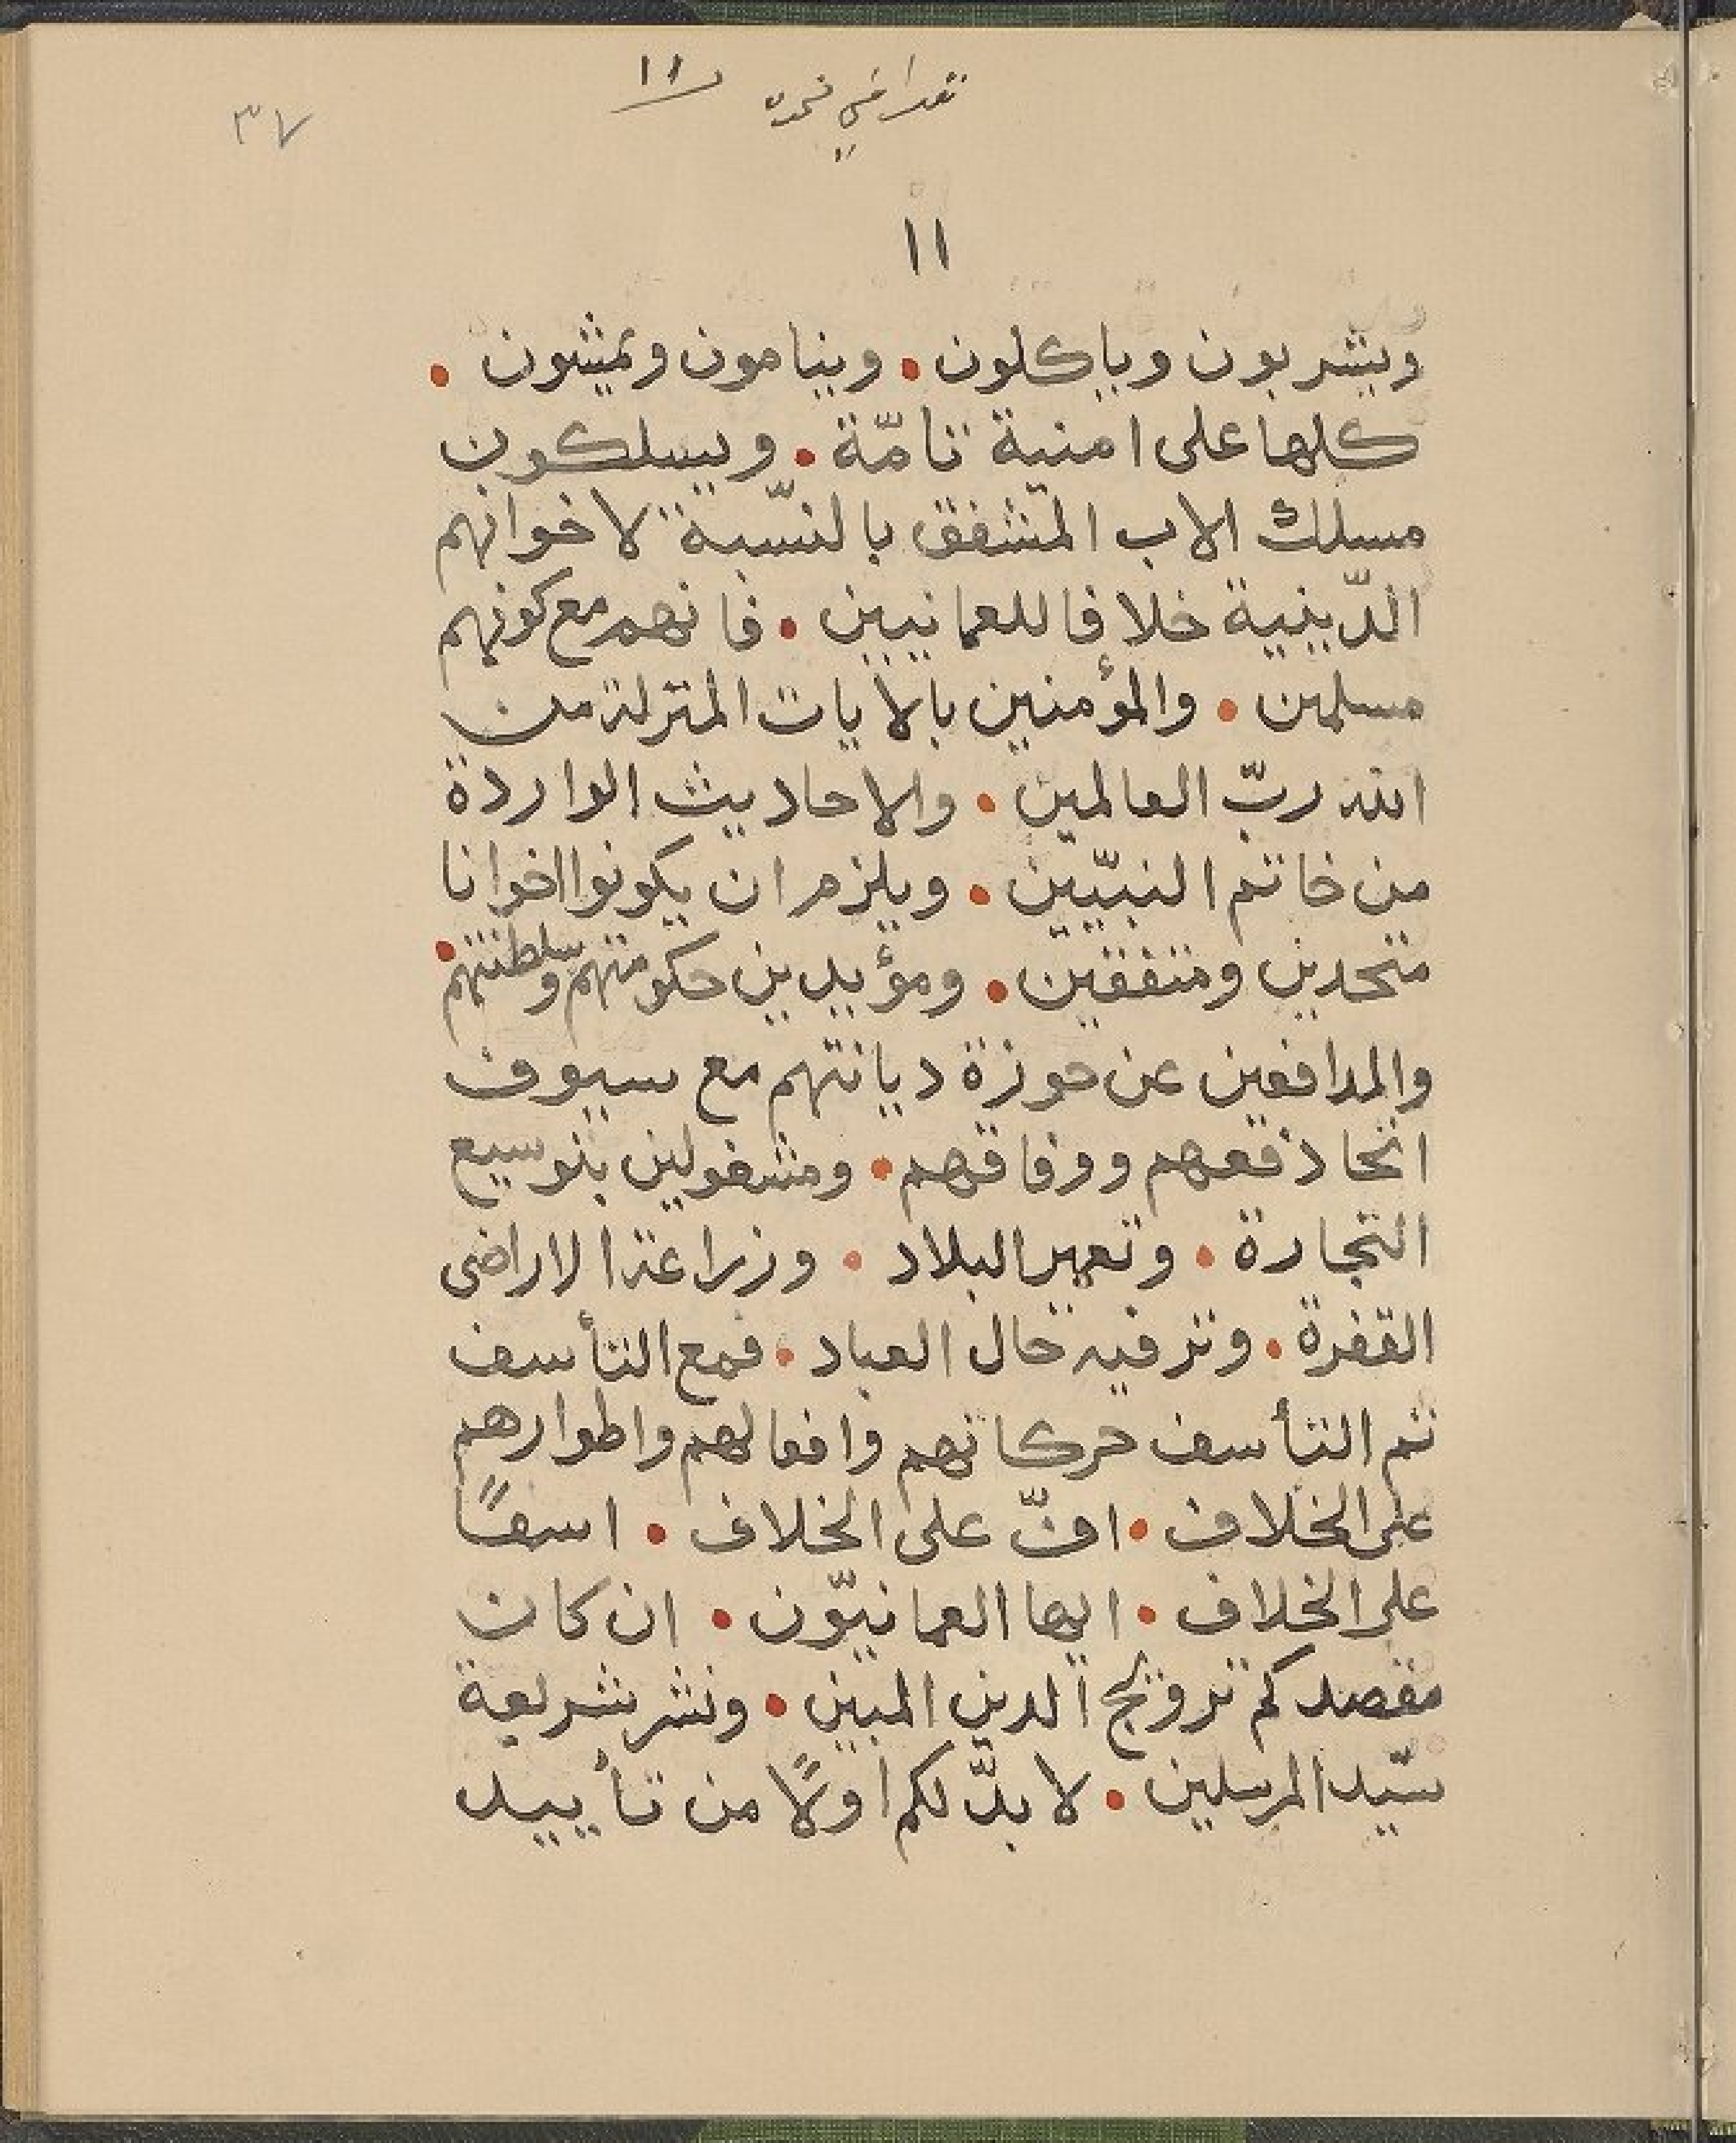 ١١
٣٧
١١
ويشربون وياكلون • وينامون ويمشون •
كلها على امنية تامّة • ويسلكون
مسلك الاب المشفق بالنّسبة لاخوانهم
الدّينية خلافا للعمانيين • فانهم مع كونهم
مسلمين • والمؤمنين بالايات المنزلة من
الله ربّ العالمين • والاحاديث الواردة
من خاتم النبيّين • ويلزم ان يكونوا اخوانا
متحدين ومتفقين • ومؤيدين حكومتهم وسلطنتهم •
والمدافعين عن حوزة ديانتهم مع سيوف
اتحاد قعهم ووفاقهم • ومشغولين بتوسيع
التجارة • وتعمير البلاد • وزراعة الاراضى
القفرة • وترفيه حال العباد • فمع التأسف
ثم التأسف حركاتهم وافعالهم واطوارهم
على الخلاف • افّ على الخلاف • اسفاً
على الخلاف • ايها العمانيّون • ان كان
مقصدكم ترويج الدين المبين • ونشر شريعة
سيّد المرسلين • لا بدّ لكم اولًا من تأييد